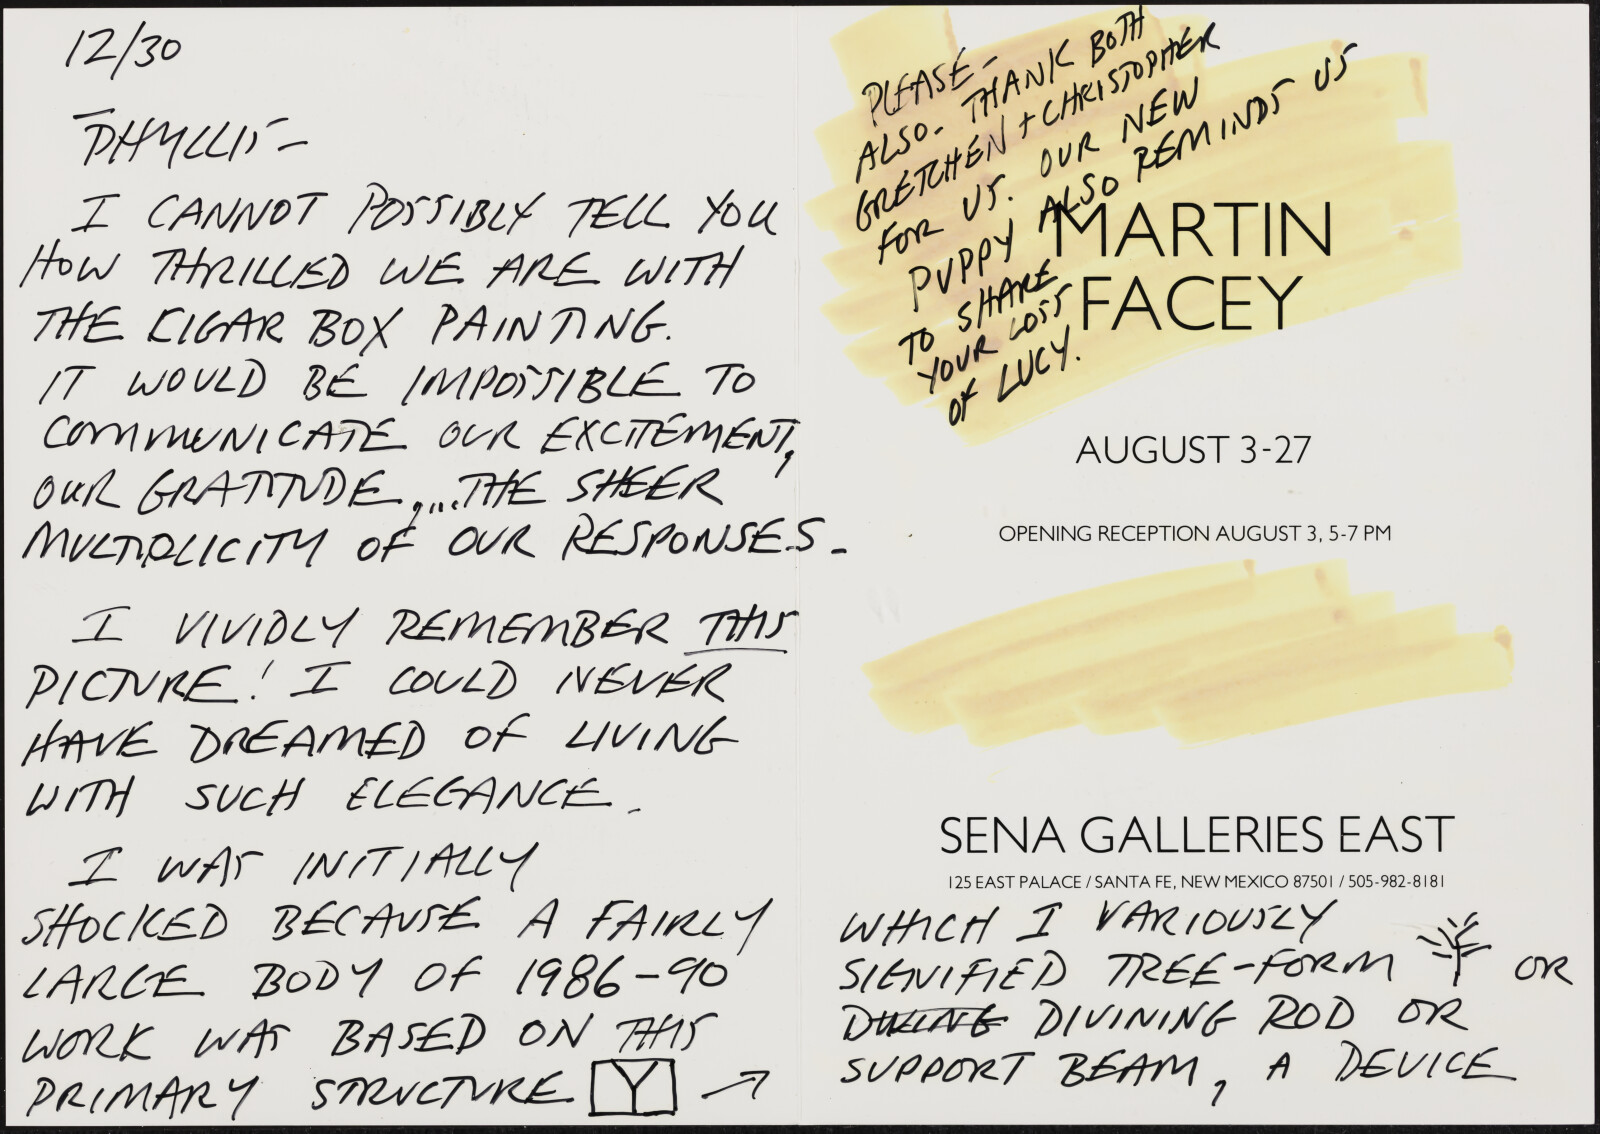 12/30
PHYLLIS –
I CANNOT POSSIBLY TELL YOU
HOW THRILLED WE ARE WITH
THE CIGAR BOX PAINTING.
IT WOULD BE IMPOSSIBLE TO
COMMUNICATE OUR EXCITEMENT,
OUR GRATITUDE,...THE SHEER
MULTIPLICITY OF OUR RESPONSES.
I VIVIDLY REMEMBER THIS
PICTURE! I COULD NEVER
HAVE DREAMED OF LIVING
WITH SUCH ELEGANCE.
I WAS INITIALLY
SHOCKED BECAUSE A FAIRLY
LARGE BODY OF 1986–90
WORK WAS BASED ON THIS
PRIMARY STRUCTURE Y →
PLEASE –
ALSO – THANK BOTH
GRETCHEN + CHRISTOPHER
FOR US. OUR NEW
PUPPY ALSO REMINDS US
TO SHARE
YOUR LOSS
OF LUCY.
MARTIN
FACEY
AUGUST 3-27
OPENING RECEPTION AUGUST 3, 5-7 PM
SENA GALLERIES EAST
125 EAST PALACE / SANTA FE, NEW MEXICO 87501 / 505-982-8181
WHICH I VARIOUSLY
SIGNIFIED TREE-FORM OR
DIVINING ROD OR
SUPPORT BEAM, A DEVICE